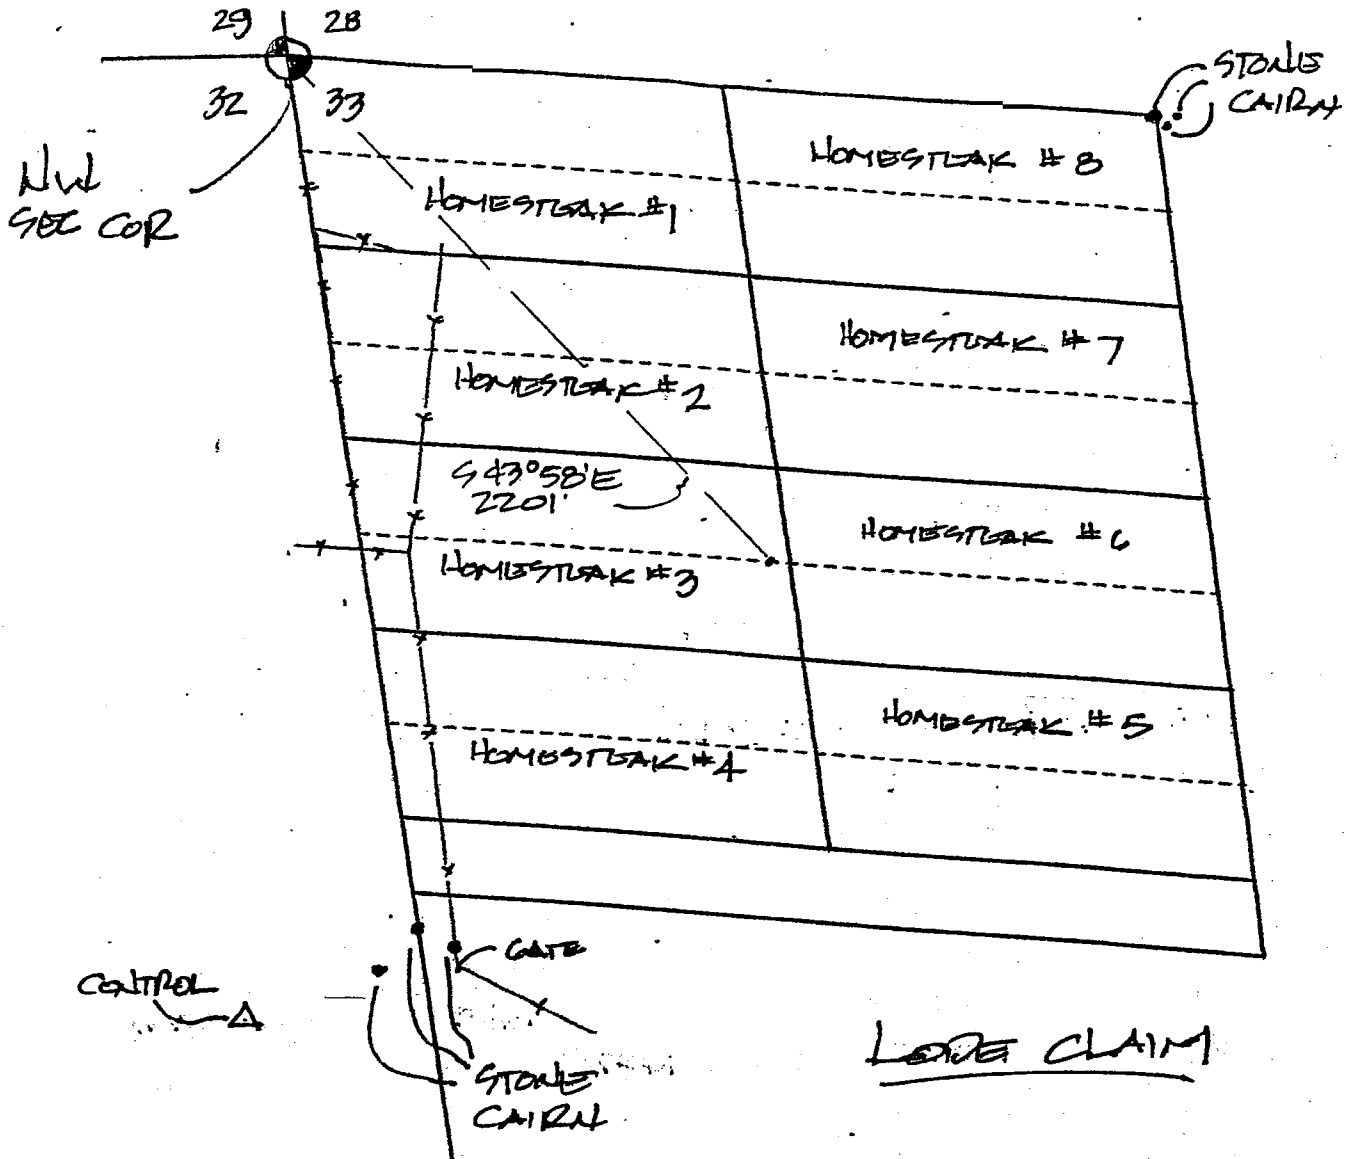 29 28
32 33
NW
SEC COR
STONE
CAIRN
HOMESTEAK #8
HOMESTEAK #1
HOMESTEAK #7
HOMESTEAK #2
S 43°58'E
2201'
HOMESTEAK #6
HOMESTEAK #3
HOMESTEAK #5
HOMESTEAK #4
GATE
CONTROL
LODE CLAIM
STONE
CAIRN